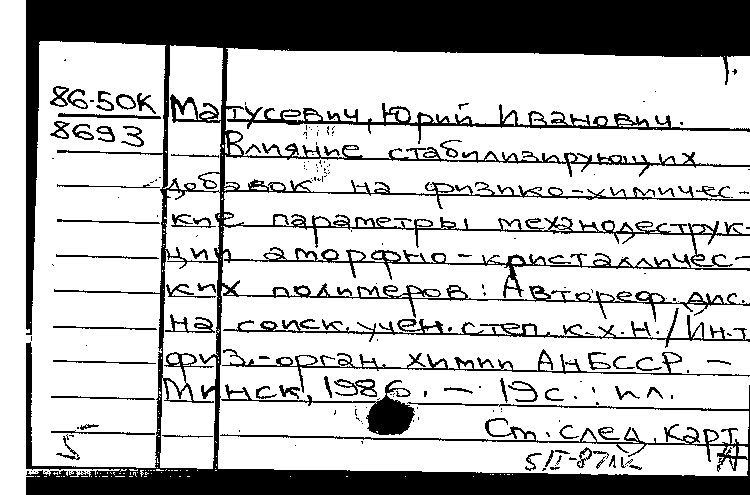 1.
86-50К
8693
Матусевич, Юрий Иванович.
Влияние стабилизирующих
добавок на физико-химичес-
кие параметры механодеструк-
ции аморфно-кристалличес-
ких полимеров: Автореф. дис.
на соиск. учен. степ. к.х.н./Ин-т
физ.-орган. химии АН БССР. —
Минск, 1986. — 19 с.: ил.
Ст. след. карт.
5
5/I-87